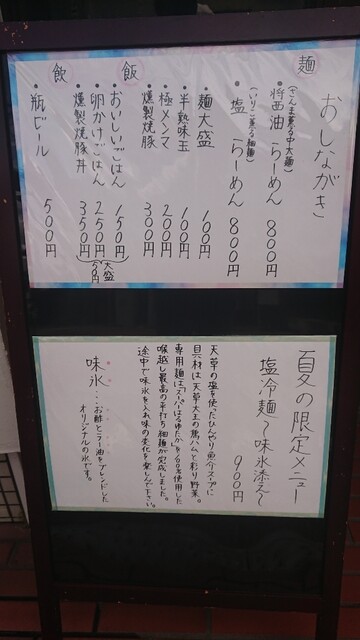 おしながき
麺
(さんま薫る中太麺)
・醤油らーめん 800円
(いりこ薫る細麺)
・塩らーめん 800円
・麺大盛 100円
・半熟味玉 100円
・極メンマ 200円
・燻製焼豚 300円
飯
・おいしいごはん 150円
・卵かけごはん 250円
・燻製焼豚丼 350円
大盛
50円
飲
・瓶ビール 500円
夏の限定メニュー
塩冷麺〜味氷添え〜
900円
天草の塩を使ったひんやり魚介スープに
具材は天草大王の鶏ハムと彩り野菜。
専用麺は、「スーパーはるゆたか」を100%使用した
喉越し最高の平打ち細麺が完成しました。
途中で味氷を入れ味の変化を楽しんで下さい。
味氷・・・お酢とラー油をブレンドした
オリジナルの氷です。